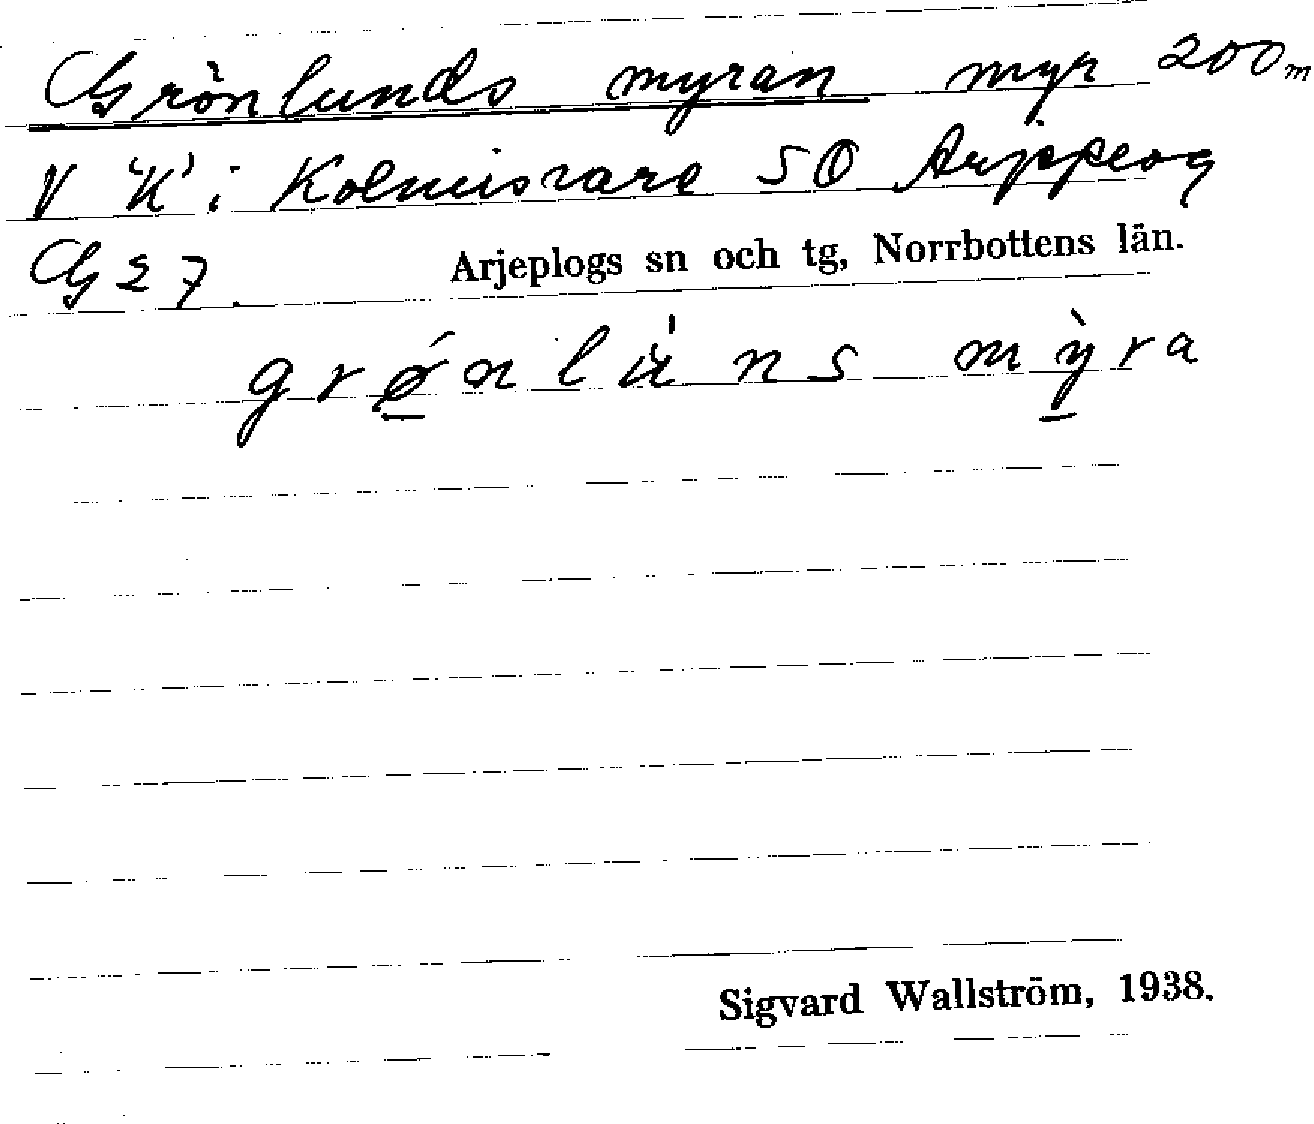 Grönlunds myran myr 200 m
V 'K' i Kolmisvare SO Arjeplog
G27. Arjeplogs sn och tg, Norrbottens län.
grǿ̲nlùns mỳ̲ra
Sigvard Wallström, 1938.